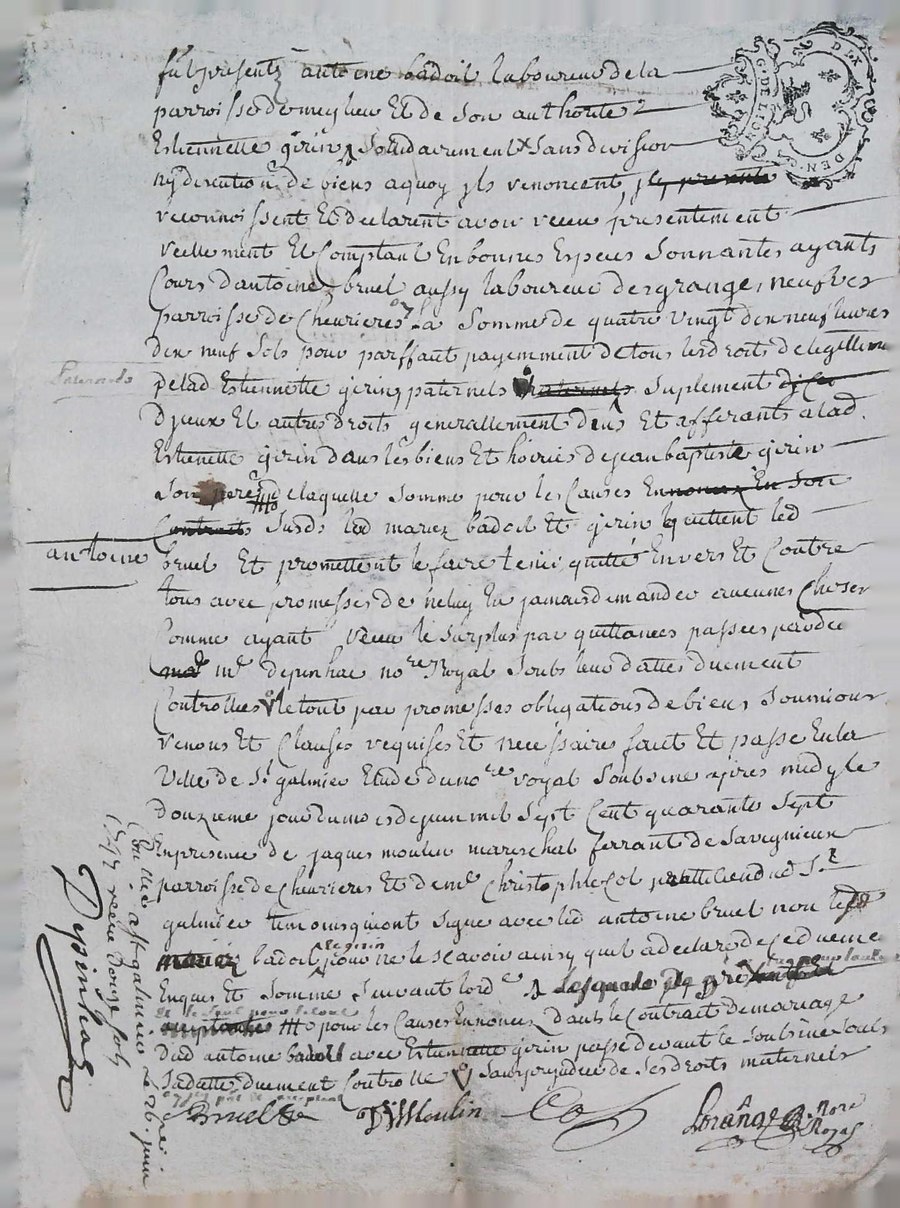 fut present antoine badoil laboureur de la
parroisse de meylieu Et de son authorité
Estiennette girin solidairement sans division
ny discution de biens a quoy ils renoncent
reconnoissent Et declarent avoir receu presentement
reellement Et Comptant En bonnes Especes sonnantes ayants
Cours d'antoine bruel aussy laboureur des granges neufves
parroisse de Chevrieres la somme de quatre vingt dix neuf livres
dix neuf sols pour parffait payemment de tous les droits de legittime
de lad Estiennette girin paternels suplement
d'jceux Et autres droits generallement deus Et afferants a lad.
Estienette girin dans les biens Et hoiries de jean baptiste girin
son pere de laquelle somme pour les Causes Ennoncez En son
Contract susds led mariez badoil Et girin quittent led
antoine
bruel Et promettent le faire tenir quitte Envers Et Contre
tous avec promesses de neluy En jamais demander aucunes Choses
Comme ayant receu le surplus par quittances passees pardev
me depinhac nore Royal soubs leur dattes duement
Controllees le tout par promesses obligations de biens soumissions
renons Et Clauses requises Et necessaires fait Et passé En la
Ville de St galmier Etude du nore royal soubsigne apres midy le
douzieme jour du mois de juin mil sept Cent quarante sept
En presence de jaques moulin mareschal ferrant de savignieux
parroisse de Chevrieres Et de me Christophle Col praticien dud St
galmier temoins qui ont signe avec led antoine bruel non led
badoil ny girin pour ne le scavoir ainsy quil a declaré de ce duement
Enquis Et sommé suivant lord
pour les Causes Ennoncez dans le Contract de mariage
dud antoine badoil avec Estiennette girin passé devant le soubsigne soubs
sa datte duement Controllé sans prejudice de ses droits maternels
Bruel
Moulin
Col
Lorange
Nore
Royal
Conllé a St galmier le 26 juin
1747 receu douze sols
Depinhac